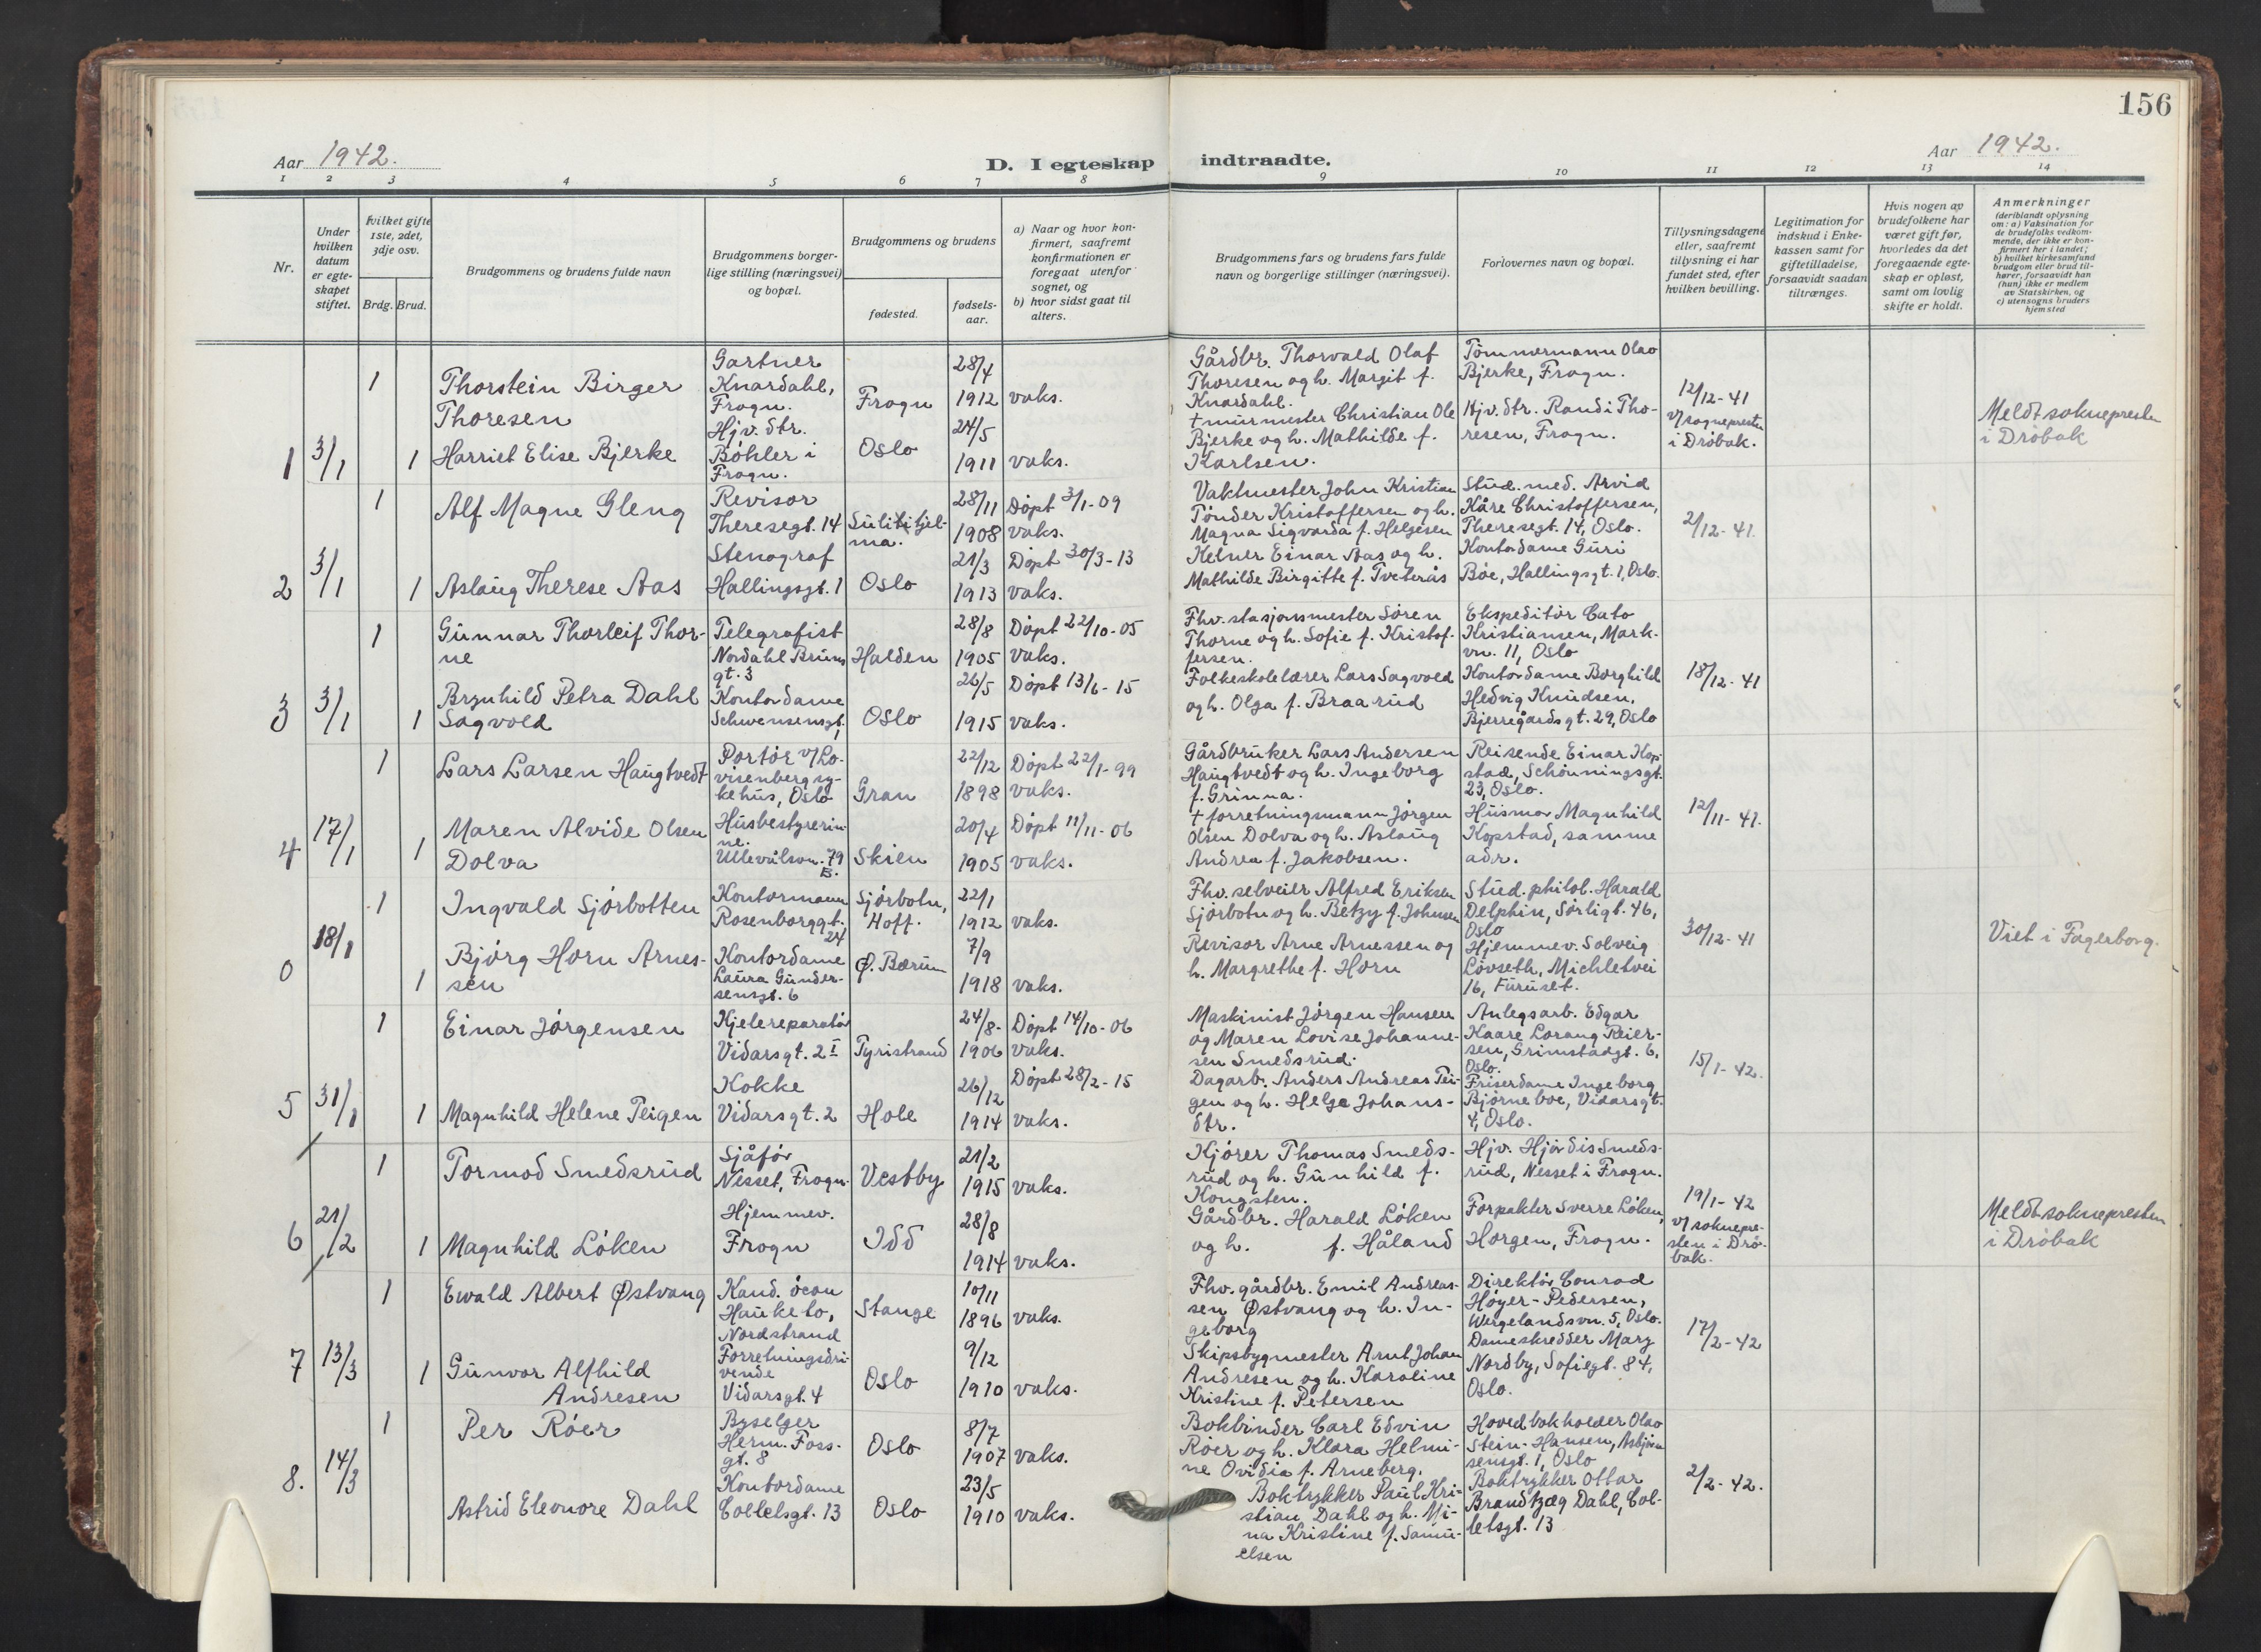 156
Aar 1942.
D. I egteskap indtraadte.
Aar 1942.
1 2 3 4 5 6 7 8 9 10 11 12 13 14
Nr.
Under hvilken datum er egte-skapet stiftet.
hvilket gifte 1ste, 2det, 3dje osv.
Brdg. Brud.
Brudgommens og brudens fulde navn
Brudgommens borger-lige stilling (næringsvei) og bopæl.
Brudgommens og brudens
fødested.
fødsels-aar.
a) Naar og hvor kon-firmert, saafremt konfirmationen er foregaat utenfor sognet, og
b) hvor sidst gaat til alters.
Brudgommens fars og brudens fars fulde navn og borgerlige stillinger (næringsvei).
Forlovernes navn og bopæl.
Tillysningsdagene eller, saafremt tillysning ei har fundet sted, efter hvilken bevilling.
Legitimation for indskud i Enke-kassen samt for giftetilladelse, forsaavidt saadan tiltrænges.
Hvis nogen av brudefolkene har været gift før, hvorledes da det foregaaende egte-skap er opløst, samt om lovlig skifte er holdt.
Anmerkninger
(deriblandt oplysning om: a) Vaksination for de brudefolks vedkom-mende, der ikke er kon-firmert her i landet; b) hvilket kirkesamfund brudgom eller brud til-hører, forsaavidt han (hun) ikke er medlem av Statskirken, og c) utensogns bruders hjemsted
1
3/1
1
Thorstein Birger
Thoresen
Gartner
Knardahl,
Frogn.
Frogn
28/4
1912
vaks.
Gårdbr. Thorvald Olaf
Thoresen og h. Margit f.
Knardahl.
Tømmermann Olav
Bjerke, Frogn.
12/12-41
v/ sognepresten
i Drøbak.
Meldt soknepresten
i Drøbak
1
Harriet Elise Bjerke
Hjv. dtr.
Bøhler i
Frogn.
Oslo
24/5
1911
vaks.
+ murmester Christian Ole
Bjerke og h. Mathilde f.
Karlsen.
Hjv. dtr. Randi Tho-
resen, Frogn.
2
3/1
1
Alf Magne Gleng
Revisor
Theresegt. 14
Sulitjel-
ma.
28/11
1908
Døpt 3/1-09
vaks.
Vaktmester John Kristian
Tønder Kristoffersen og h.
Magna Sigvarda f. Helgesen
Stud. med. Arvid
Kåre Christoffersen,
Theresegt. 14, Oslo.
2/12-41.
1
Aslaug Therese Aas
Stenograf
Hallingsgt. 1
Oslo
21/3
1913
Døpt 30/3-13
vaks.
Kelner Einar Aas og h.
Mathilde Birgitte f. Tveterås
Kontordame Guri
Bøe, Hallingsgt. 1, Oslo.
3
3/1
1
Gunnar Thorleif Thor-
ne
Telegrafist
Nordahl Bruns
gt. 3
Halden
28/8
1905
Døpt 22/10-05
vaks.
Fhv. stasjonsmester Søren
Thorne og h. Sofie f. Kristof-
fersen.
Ekspeditør Cato
Kristiansen, Mark-
vn. 11, Oslo
18/12-41
1
Brynhild Petra Dahl
Sagvold
Kontordame
Schwensensgt.
1
Oslo
26/5
1915
Døpt 13/6-15
vaks.
Folkeskolelærer Lars Sagvold
og h. Olga f. Braarud
Kontordame Borghild
Hedvig Knudsen,
Bjerregårdsgt. 29, Oslo
4
17/1
1
Lars Larsen Haugtvedt
Portør v/ Lo-
visenberg sy-
kehus, Oslo
Gran
22/12
1898
Døpt 22/1-99
vaks.
Gårdbruker Lars Andersen
Haugtvedt og h. Ingeborg
f. Grinna.
Reisende Einar Kop-
stad, Schønningsgt.
23, Oslo.
12/11-41.
1
Maren Alvide Olsen
Dolva
Husbestyrerin-
ne.
Ullevålsvn. 79
B.
Skien
20/4
1905
Døpt 11/11-06
vaks.
+ forretningsmann Jørgen
Olsen Dolva og h. Aslaug
Andrea f. Jakobsen.
Husmor Magnhild
Kopstad, samme
adr.
0
18/1
1
Ingvald Sjørbotten
Kontormann
Rosenborggt.
24
Sjørbotn,
Hoff.
22/1
1912
vaks.
Fhv. selveier Alfred Eriksen
Sjørbotn og h. Betzy f. Johnsen
Stud. philol. Harald
Delphin, Sørligt. 46,
Oslo
30/12-41
Viet i Fagerborg.
1
Bjørg Horn Arnes-
sen
Kontordame
Laura Gunder-
sensgt. 6
Ø. Bærum
7/9
1918
vaks.
Revisor Arne Arnessen og
h. Margrethe f. Horn
Hjemmev. Solveig
Løvseth, Michletvei
16, Furuset.
5
31/1
1
Einar Jørgensen
Kjelereparatør
Vidarsgt. 2 I
Tyristrand
24/8-
1906
Døpt 14/10-06
vaks.
Maskinist Jørgen Hansen
og Maren Lovise Johanne-
sen Smedsrud.
Anlegsarb. Edgar
Kaare Lorang Reier-
sen, Grimstadgt. 6,
Oslo.
15/1-42.
1
Magnhild Helene Teigen
Kokke
Vidarsgt. 2
Hole
26/12
1914
Døpt 28/2-15
vaks.
Dagarb. Anders Andreas Tei-
gen og h. Helga Johans-
dtr.
Friserdame Ingeborg
Bjørneboe, Vidarsgt.
4, Oslo.
6
21/2
1
Tormod Smedsrud
Sjåfør
Nesset, Frogn.
Vestby
21/2
1915
vaks.
Kjører Thomas Smeds-
rud og h. Gunhild f.
Kongsten.
Hjv. Hjørdis Smeds-
rud, Nesset i Frogn.
19/1-42
v/ soknepre-
sten i Drø-
bak.
Meldt soknepresten
i Drøbak
1
Magnhild Løken
Hjemmev.
Frogn
Idd
28/8
1914
vaks.
Gårdbr. Harald Løken
og h. f. Håland
Forpakter Sverre Løken,
Horgen, Frogn.
7
13/3
1
Ewald Albert Østvang
Kand. øcon
Hauketo,
Nordstrand
Stange
10/11
1896
vaks.
Fhv. gårdbr. Emil Andreas-
sen Østvang og h. In-
geborg
Direktør Conrad
Høyer-Pedersen,
Wergelandsvn. 5, Oslo.
17/2-42
1
Gunvor Alfhild
Andresen
Forretningsdri-
vende
Vidarsgt. 4
Oslo
9/12
1910
vaks.
Skipsbygmester Arnt Johan
Andresen og h. Karoline
Kristine f. Petersen
Dameskredder Mary
Nordby, Sofiegt. 84,
Oslo.
8.
14/3
1
Per Röer
Byselger
Herm. Foss-
gt. 8
Oslo
8/7
1907
vaks.
Bokbinder Carl Edvin
Roer og h. Klara Helmi-
ne Ovidia f. Arneberg.
Hovedbokholder Olav
Stein-Hansen, Asbjørn
sensgt. 1, Oslo
2/2-42.
Astrid Eleonore Dahl
Kontordame
Colletsgt. 13
Oslo
23/5
1910
vaks.
Boktrykker Paul Kri-
stian Dahl og h. Mi-
na Kristine f. Samu-
elsen
Boktrykker Ottar
Brandtzæg Dahl, Col-
letsgt. 13